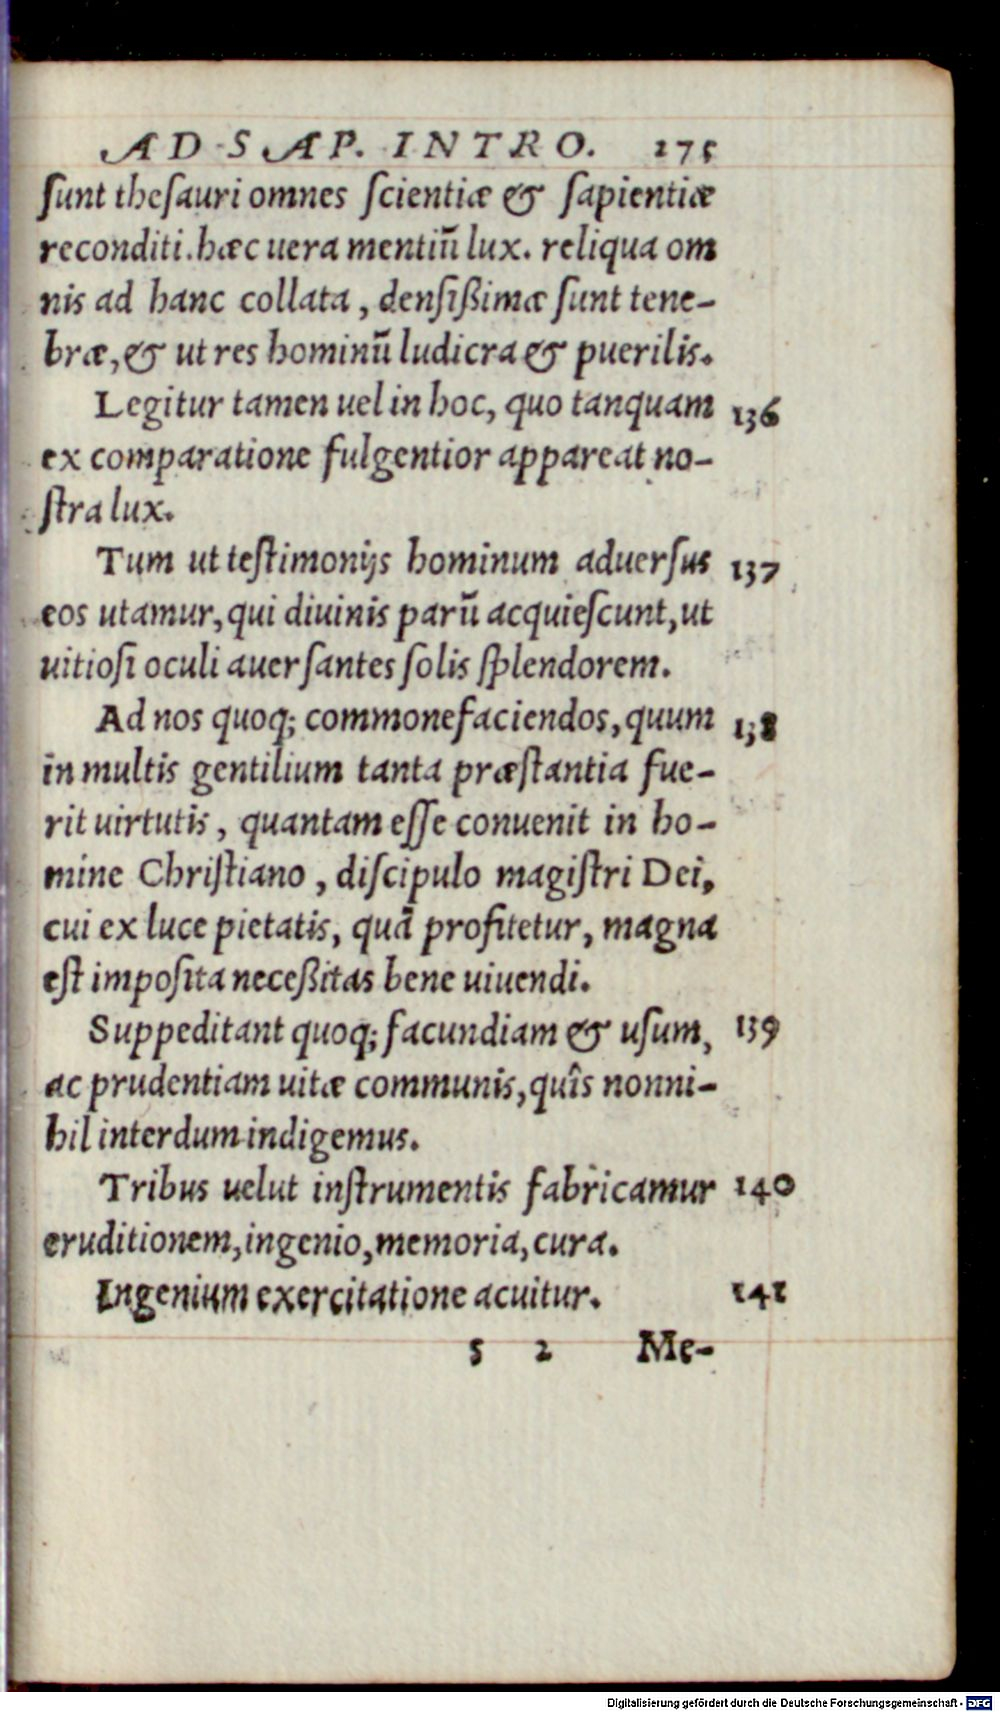 AD SAP. INTRO. 275
ſunt theſauri omnes ſcientiæ & ſapientiæ
reconditi. hæc uera mentiū lux. reliqua om
nis ad hanc collata, denſißimæ ſunt tene-
bræ, & ut res hominū ludicra & puerilis.
Legitur tamen uel in hoc, quo tanquam 136
ex comparatione fulgentior appareat no-
ſtra lux.
Tum ut teſtimonijs hominum aduerſus 137
eos utamur, qui diuinis parū acquieſcunt, ut
uitioſi oculi auerſantes ſolis ſplendorem.
Ad nos quoq; commonefaciendos, quum 138
in multis gentilium tanta præſtantia fue-
rit uirtutis, quantam eſſe conuenit in ho-
mine Chriſtiano, diſcipulo magiſtri Dei,
cui ex luce pietatis, quā profitetur, magna
eſt impoſita neceßitas bene uiuendi.
Suppeditant quoq; facundiam & uſum, 139
ac prudentiam uitæ communis, quîs nonni-
hil interdum indigemus.
Tribus uelut inſtrumentis fabricamur 140
eruditionem, ingenio, memoria, cura.
Ingenium exercitatione acuitur. 141
s 2 Me-
Digitalisierung gefördert durch die Deutsche Forschungsgemeinschaft - DFG